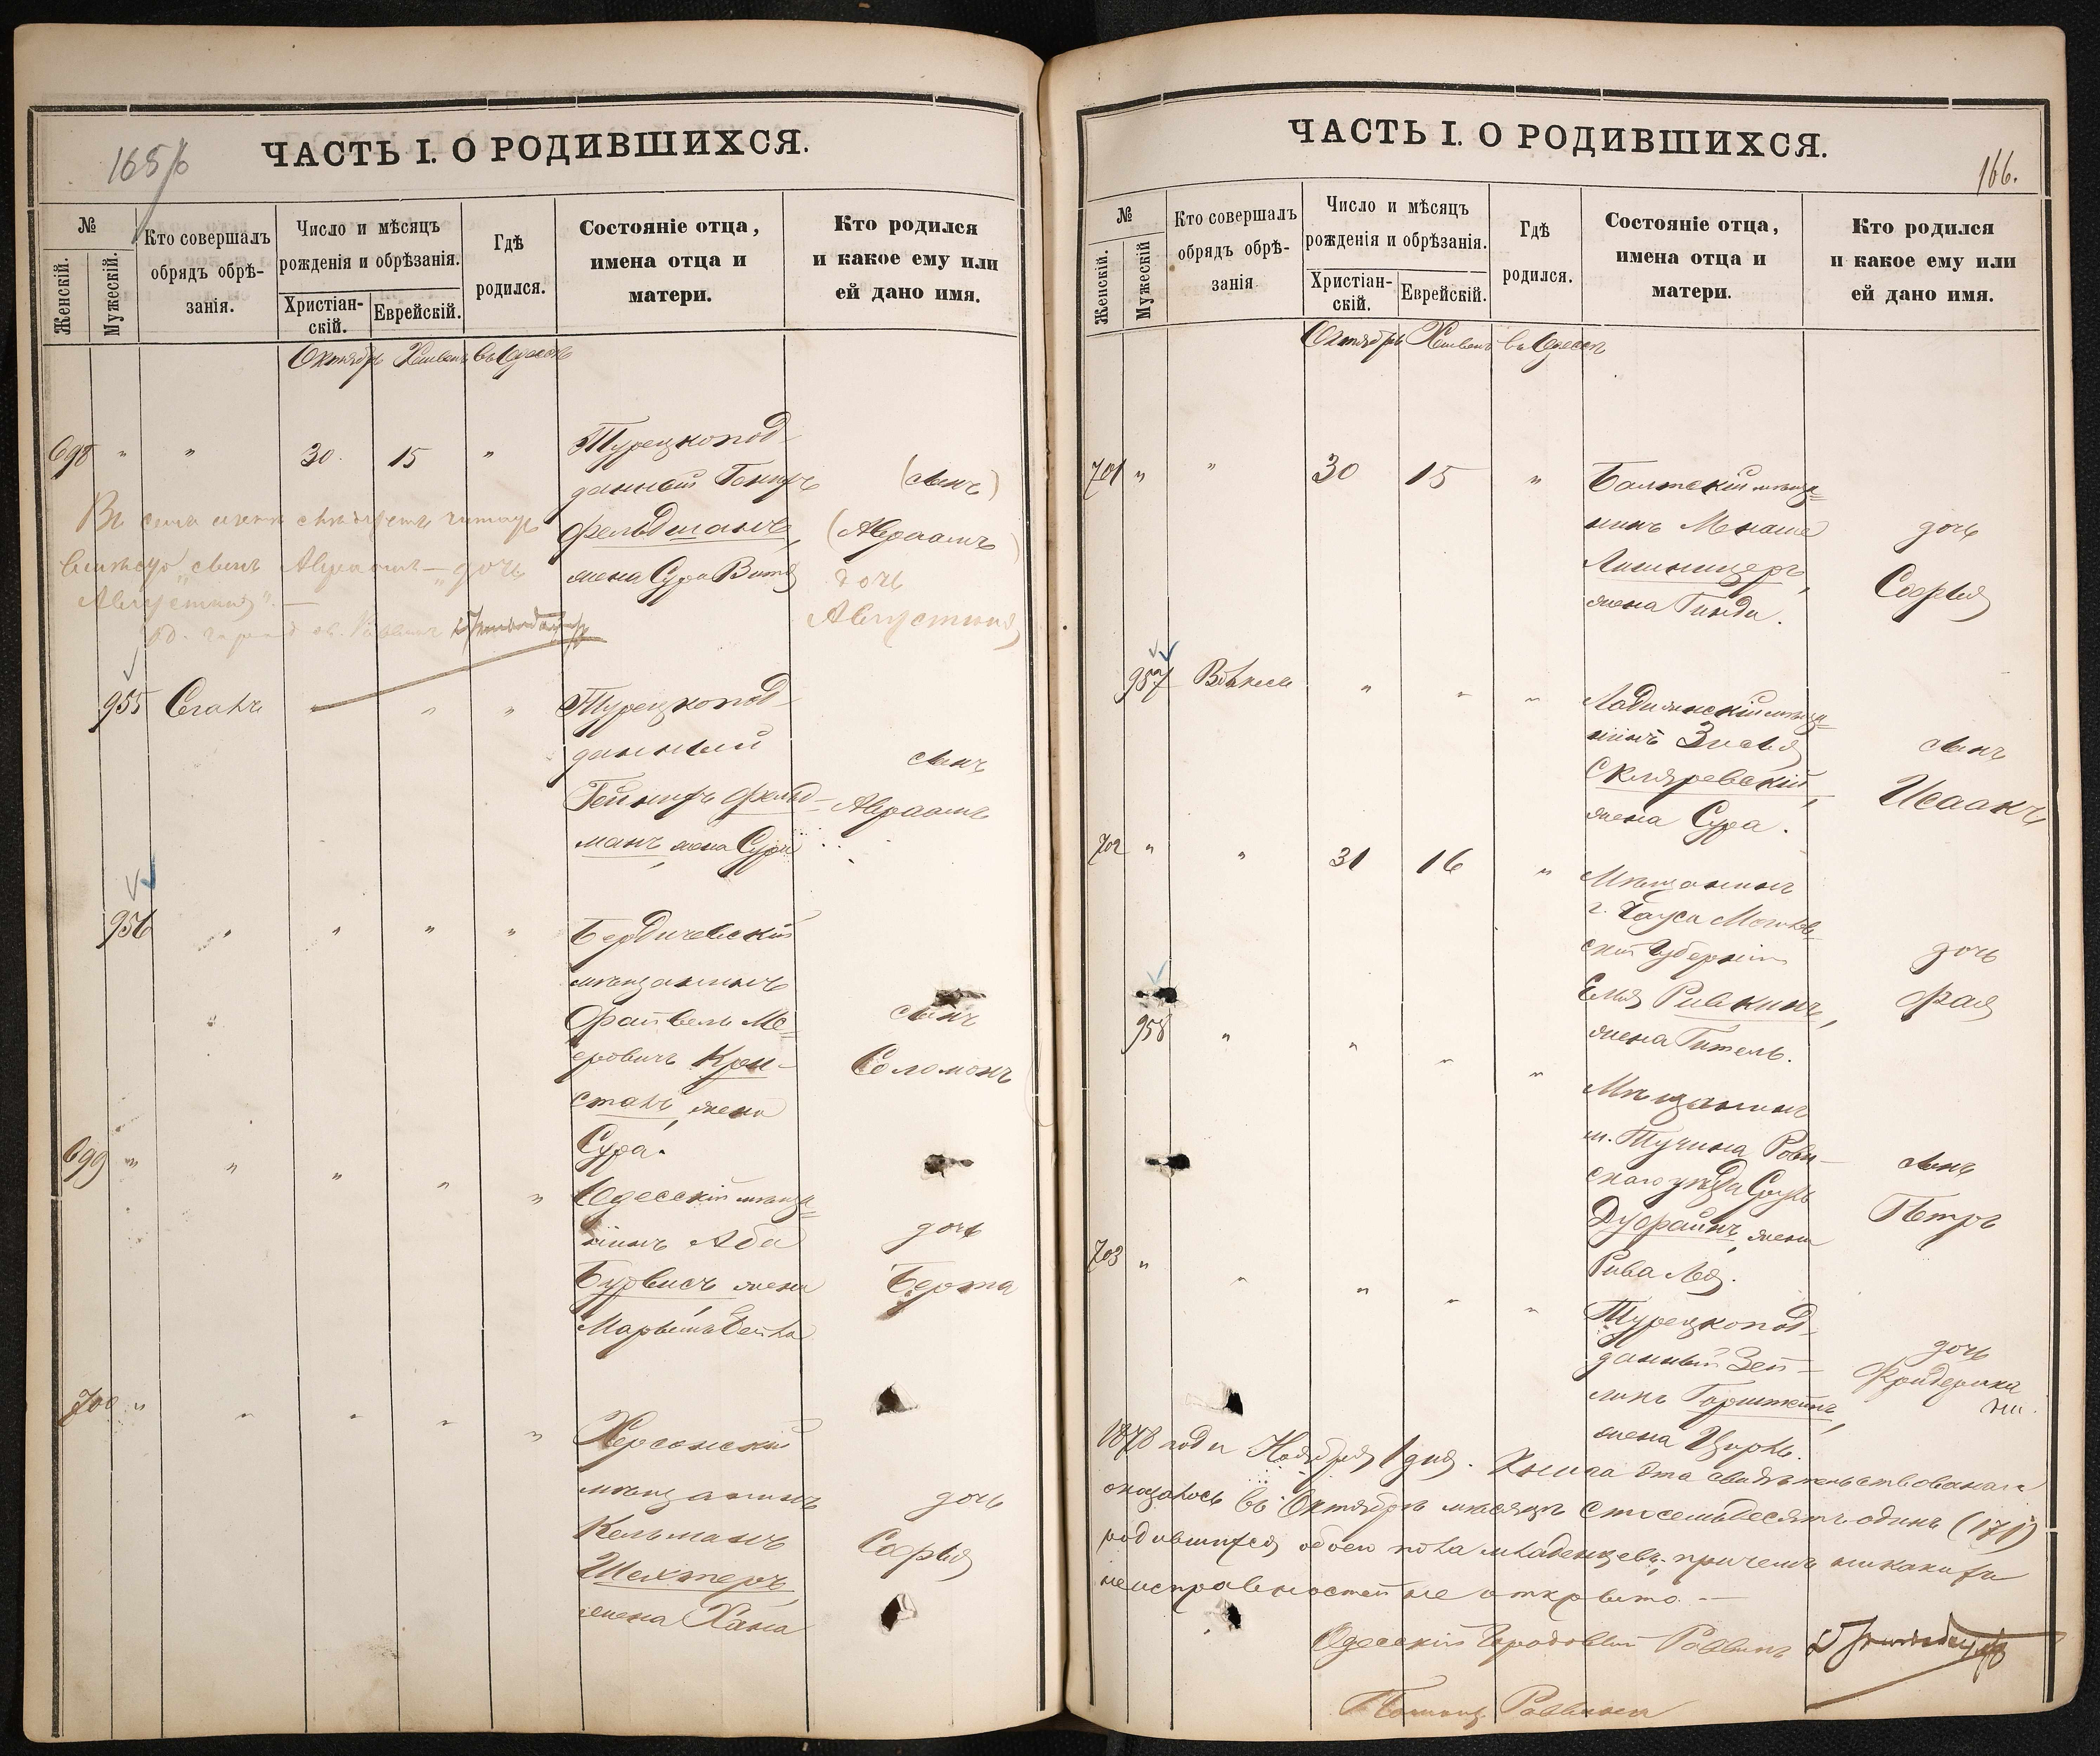 165/б
ЧАСТЬ I. О РОДИВШИХСЯ.
№
Женскій.
Мужескій.
Кто совершалъ
обрядъ обрѣ-
занія.
Число и мѣсяцъ
рожденія и обрѣзанія.
Христіан-
скій.
Еврейскій.
Гдѣ
родился.
Состояніе отца,
имена отца и
матери.
Кто родился
и какое ему или
ей дано имя.
Октябрь Хешвенъ въ Одессѣ
698 " " 30 15 "
Турецкопод-
данный Генихъ
Фельдманъ,
жена Сура Витя
(сынъ)
(Авраамъ)
дочь
Августина
Въ семъ слѣдуетъ читать
вмѣсто "сынъ Авраамъ — дочь
Августина". —
Од. город. Раввинъ
955 Сегалъ — " "
Турецкопод-
данный
Гейнихъ Фельд-
манъ, жена Сура
сынъ
Авраамъ
956 " " " "
Бердичевскій
мѣщанинъ
Файвель Ме-
еровичъ Крен-
сталь, жена
Сура.
сынъ
Соломонъ
699 " " " " "
Одесскій мѣща-
нинъ Аба
Бурвисъ жена
Марьемъ Бейла
дочь
Берта
700 " " " " "
Херсонскій
мѣщанинъ
Кельманъ
Шехтеръ,
жена Хана
дочь
Софья
ЧАСТЬ I. О РОДИВШИХСЯ.
166.
№
Женскій.
Мужескій
Кто совершалъ
обрядъ обрѣ-
занія
Число и мѣсяцъ
рожденія и обрѣзанія.
Христіан-
скій.
Еврейскій.
Гдѣ
родился.
Состояніе отца,
имена отца и
матери.
Кто родился
и какое ему или
ей дано имя.
Октябрь Хешвенъ въ Одессѣ
701 " " 30 15 "
Балтскій мѣща-
нинъ Менаше
жена Гинда.
дочь
Софья
957 " " "
Ладыжинскій мѣща-
нинъ Зисья
Скляревскій,
жена Сура.
сынъ
Исаакъ
702 " " 31 16 "
Мѣщанинъ
г. Чаусы Могилев-
ской Губерніи
Еля Ривкинъ,
жена Гитель.
дочь
Фая
958 " " " "
Мѣщанинъ
м. Тучина Ровен-
скаго уѣзда Сруль
Дуфайнъ, жена
Рива Лея.
сынъ
Петръ
703 " " " " "
Турецкопод-
данный Зей-
линъ
жена Цирль.
дочь
Фридерика
1878 года Ноября 1 дня. Книга эта свидѣтельствована и
оказалось въ Октябрѣ мѣсяцѣ Стосемьдесятъ одинъ (171)
родившихся обоего пола младенцевъ; причемъ никакихъ
неисправностей не открыто. —
Одесскій Городовой Раввинъ
Раввина